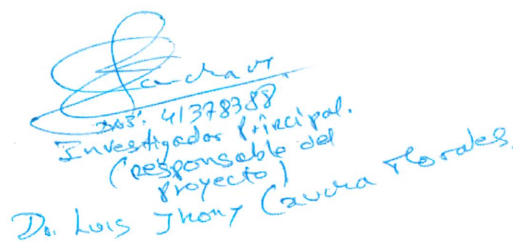 DNI: 41378388
Investigador Principal.
(responsable del
proyecto)
Dr. Luis Jhony Caucha Morales.